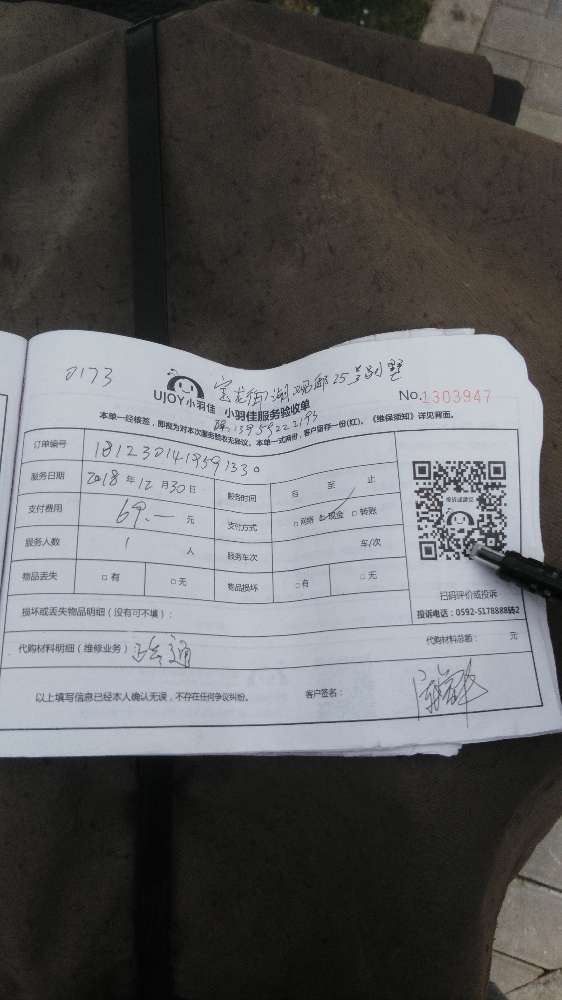 0173
25号别墅
UJOY小羽佳 小羽佳服务验收单 No.1303947
13959222193
本单一经核签，即视为对本次服务验收无异议。本单一式两份，客户留存一份(红)。《维保须知》详见背面。
订单编号
服务日期 2018 年 12 月 30 日 服务时间 自 至 止
支付费用 69.— 元 支付方式 □网络 □现金 □转账
服务人数 1 人 服务车次 车/次
物品丢失 □有 □无 物品损坏 □有 □无
扫码评价或投诉
投诉电话：0592-5178888转2
损坏或丢失物品明细（没有可不填）：
代购材料明细（维修业务） 通 代购材料总额： 元
以上填写信息已经本人确认无误，不存在任何争议纠纷。 客户签名：